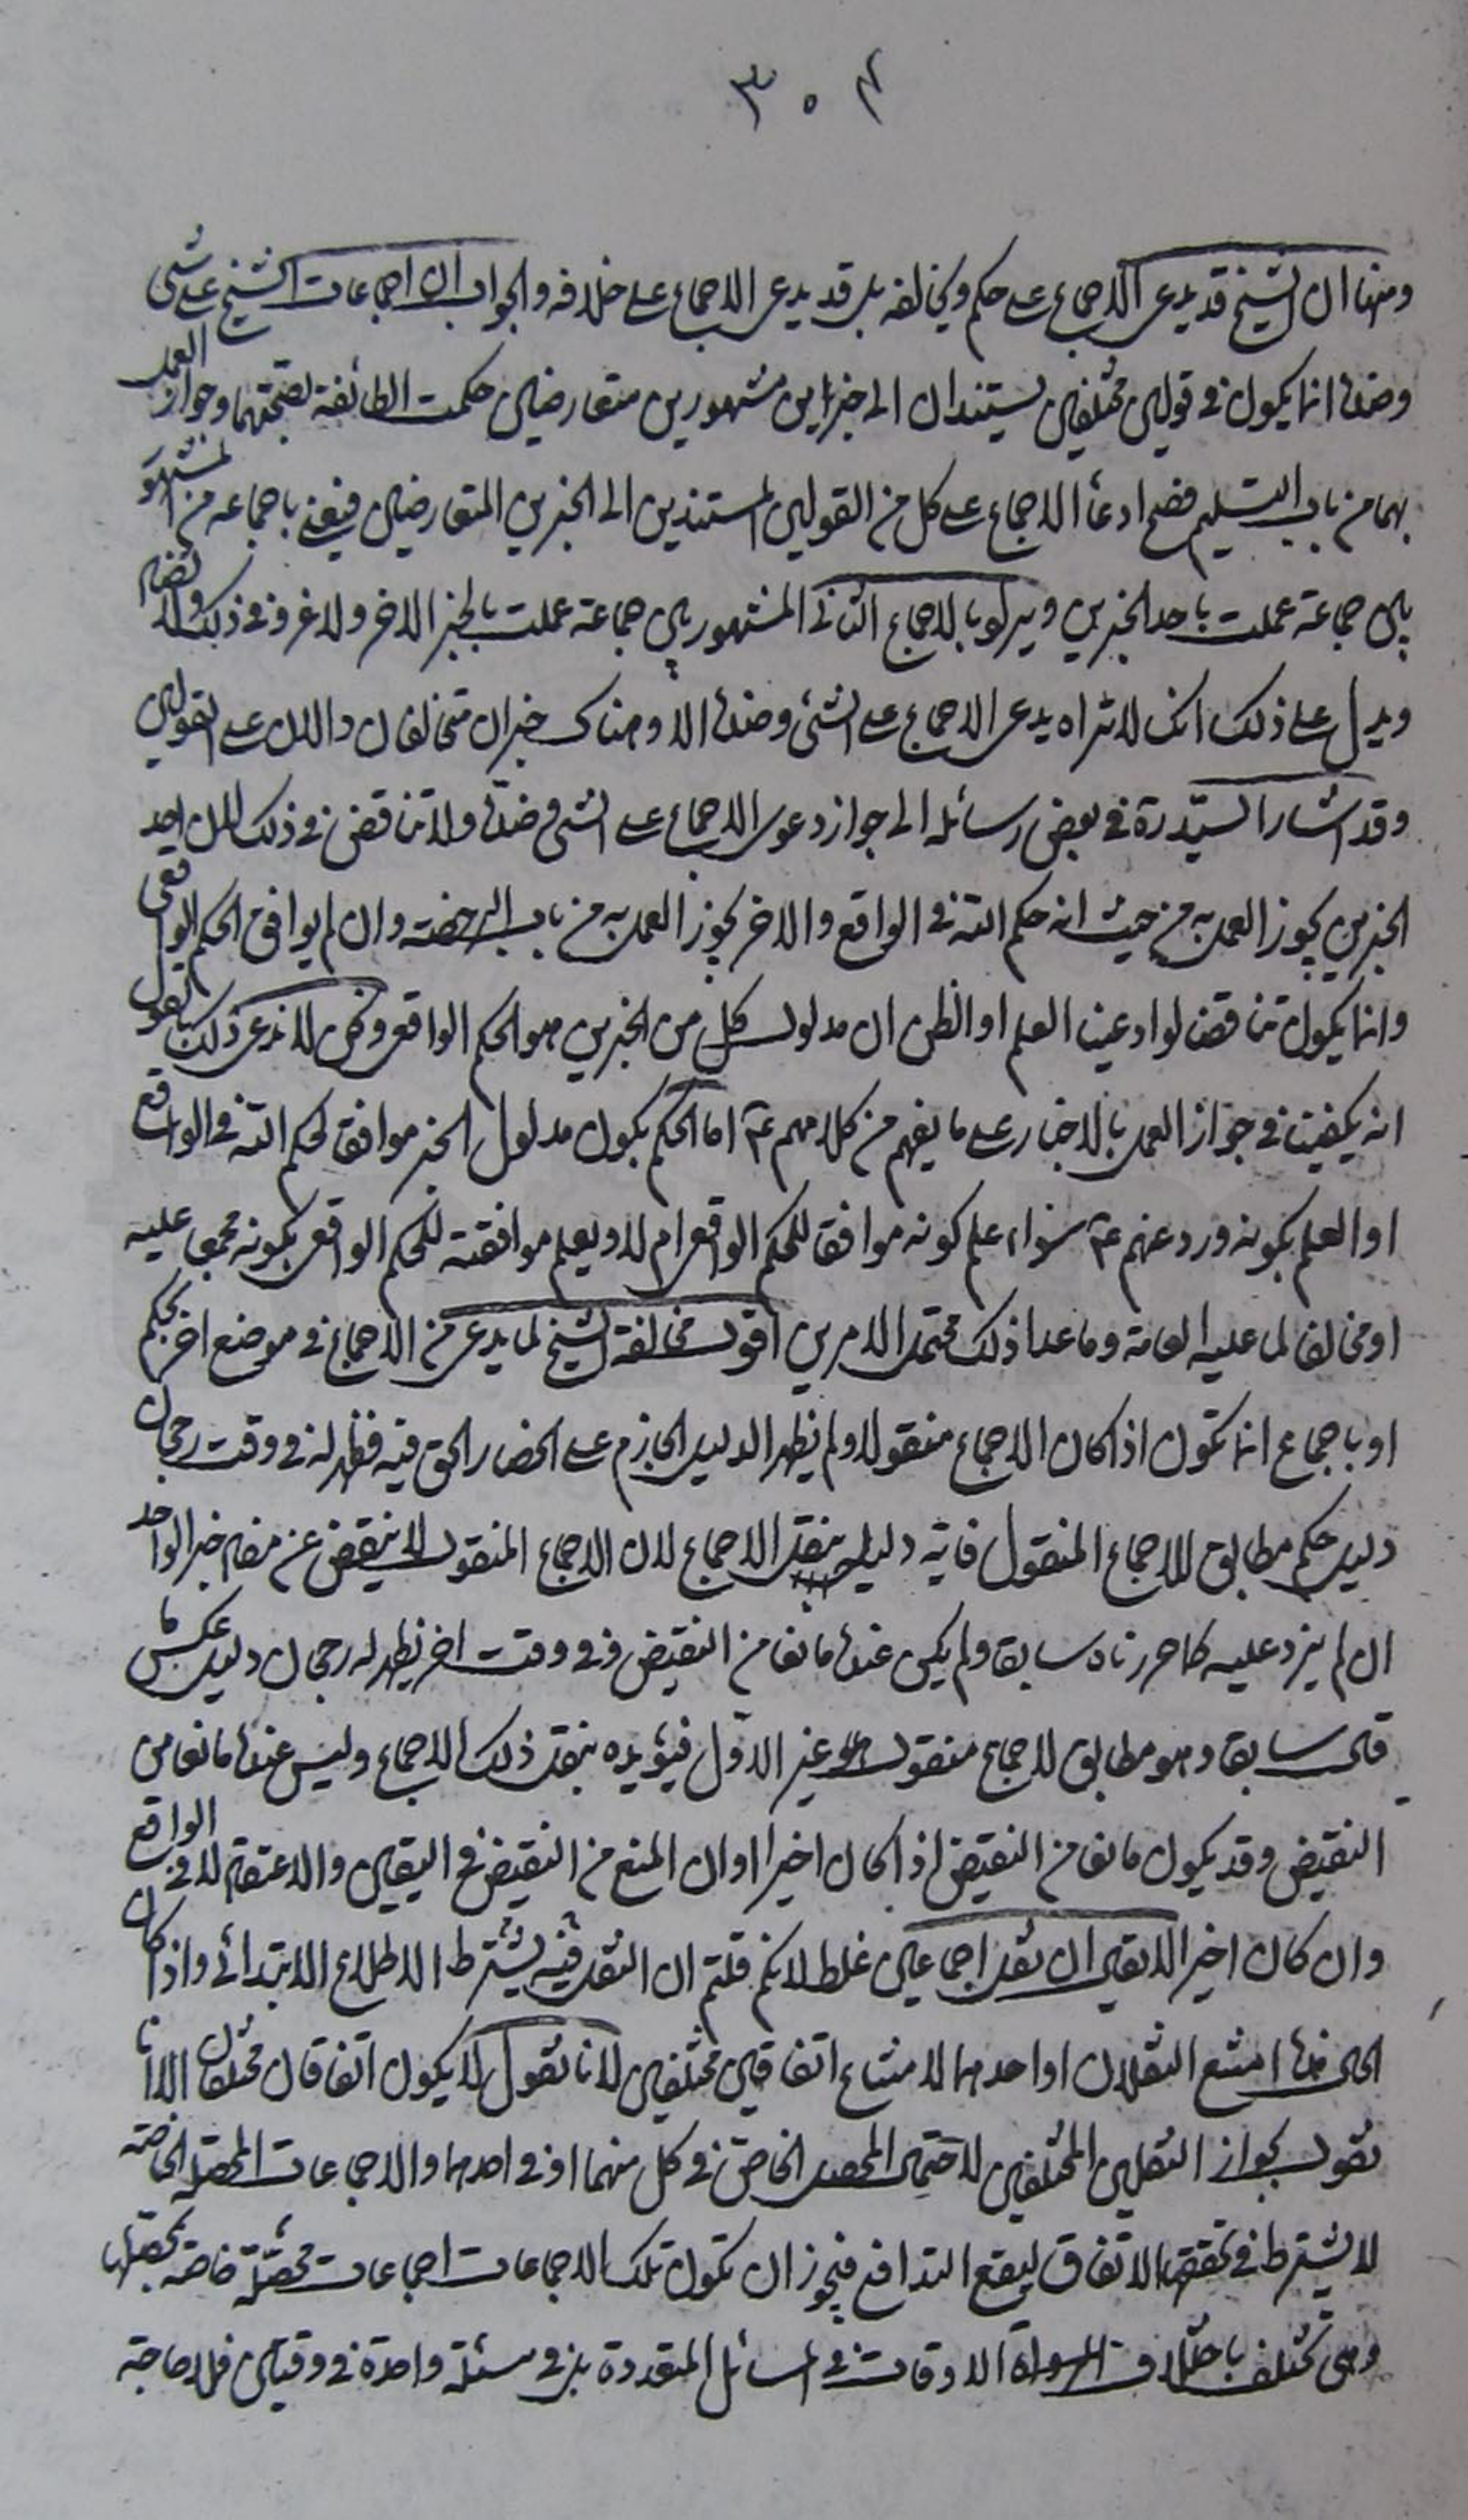 ٣٠٤
ومنها ان الشيخ قد يدعى الاجماع على حكم ويخالفه بل قد يدعى الاجماع على خلافه والجواب ان اجماعات الشيخ على شئ
وضده انما يكون فى قولين مختلفين يستندان الى خبرين مشهورين متعارضين حكمت الطائفة بصحتهما وجواز العمل
بهما من باب التسليم فصح ادعاء الاجماع على كل من القولين المستندين الى الخبرين المتعارضين فيعنى باجماعه من المشهور
بين جماعة عملت باحد الخبرين ويريد بالاجماع الثانى المشهور بين جماعة عملت بالخبر الاخر ولا غرو فى ذلك
ويدل على ذلك انك لا تراه يدعى الاجماع على الشئ وضده الا وهناك خبران متخالفان دالان على القولين
وقد اشار السيد ره فى بعض رسائله الى جواز دعوى الاجماع على الشئ وضده ولا تناقض فى ذلك لان احد
الخبرين يجوز العمل به من حيث انه حكم الله فى الواقع والاخر يجوز العمل به من باب الرخصة وان لم يوافق الحكم الواقعى
وانما يكون تناقضا لو ادعينا العلم او الظن ان مدلول كل من الخبرين هو الحكم الواقعى ونحن لا ندعى ذلك بل نقول
انه يكفينا فى جواز العمل بالاخبار على ما يفهم من كلامهم ع اما الحكم بكون مدلول الخبر موافقا لحكم الله فى الواقع
او العلم بكونه ورد عنهم ع سواء علم كونه موافقا للحكم الواقعى ام لا ويعلم موافقته للحكم الواقعى بكونه مجمعا عليه
او مخالفا لما عليه العامة وما عدا ذلك محتمل الامرين اقول مخالفة الشيخ لما يدعى من الاجماع فى موضع اخر بحكم
او باجماع انما تكون اذا كان الاجماع منقولا ولم يظهر الدليل الجازم على انحصار الحق فيه فظهر له فى وقت رجحان
دليل حكم مطابق للاجماع المنقول فايد دليله بنقل الاجماع لان الاجماع المنقول لا ينقص عن مفاد خبر الواحد
ان لم يزد عليه كما حررناه سابقا ولم يكن عنده مانعا من النقيض وفى وقت اخر يظهر له رجحان دليل عكس ما
قال سابقا وهو مطابق لاجماع منقول غير الاول فيؤيده بنقل ذلك الاجماع وليس عنده مانعا من
النقيض وقد يكون مانعا من النقيض اذا كان اخيرا اوان المنع من النقيض فى اليقين والاعتقاد لا فى الواقع
وان كان اخيرا لا يقال ان نقل اجماعين غلط لانكم قلتم ان النقل فيه يشترط الاطلاع الابتدائى واذا كان
الحال هذا امتنع النقلان او احدهما لامتناع اتفاقين مختلفين لانا نقول لا يكون اتفاقان مختلفان الا انا
نقول بجواز النقلين المختلفين لاحتمال المحصل الخاص فى كل منهما او فى احدهما والاجماعات المحصلة الخاصة
لا يشترط فى تحققها الاتفاق ليقع التدافع فيجوز ان تكون تلك الاجماعات اجماعات محصلة خاصة بمحصلها
وهى تختلف باختلاف الاوقات فى المسائل المتعددة بل فى مسئلة واحدة فى وقتين فلا حاجة